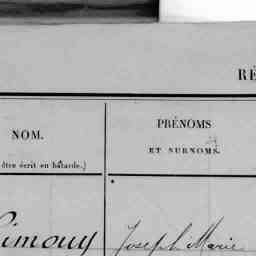 RÉ
NOM.
PRÉNOMS
ET SURNOMS.
être écrit en bâtarde.)
Limouy Joseph Marie